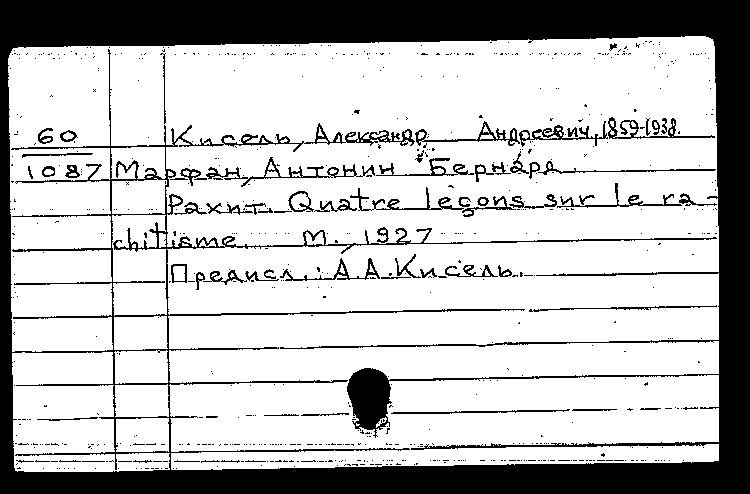 60 Кисель, Александр Андреевич, 1859-1938.
1087 Марфан, Антонин Бернард.
Рахит. Quatre leçons sur le ra-
chitisme. М., 1927
Предисл.: А.А.Кисель.